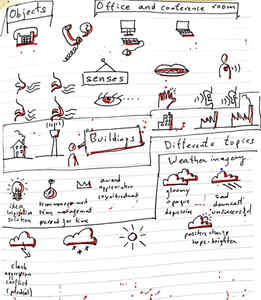 Objects
Office and conference room
senses
Buildings
Differents topics
Weather imagery
idea
inspiration
solution
time management
time management
pressed for time
award
appreciation
royal treatment
gloomy
opaque
depressive
sad
downcast
unsuccessful
positive change
hope - brighten
clash
aggression
conflict
(potential)